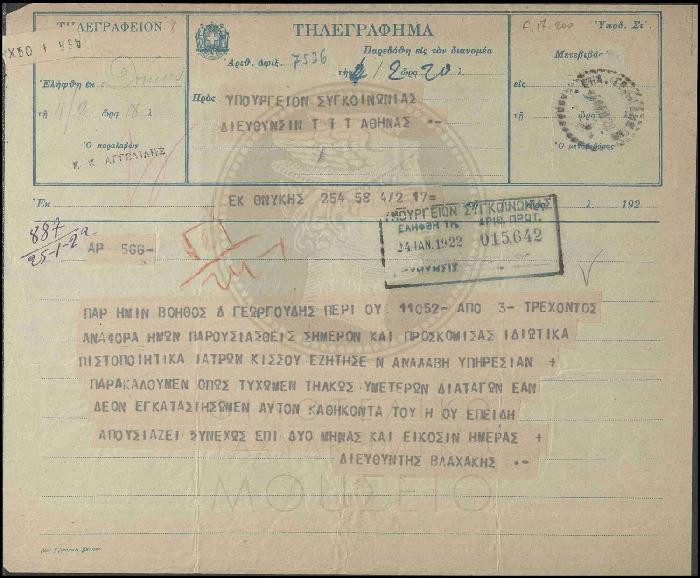 ΤΗΛΕΓΡΑΦΕΙΟΝ
ΤΗΛΕΓΡΑΦΗΜΑ
Ε. 17. 200
Ὑποδ. Σε΄.
Ἀριθ. ἀφιξ. 7536
Παρεδόθη εἰς τὸν διανομέα
τῇ 4/2 ὥρα 20 λ
Μετεβιβά
Ἐλήφθη ἐκ
τῇ 4/2 ὥρα 18 λ
Ὁ παραλαβὼν
Κ Κ ΑΓΓΕΛΙΔΗΣ
Πρὸς
ΥΠΟΥΡΓΕΙΟΝ ΣΥΓΚΟΙΝΩΝΙΑΣ
ΔΙΕΥΘΥΝΣΙΝ Τ Τ Τ ΑΘΗΝΑΣ .-
εἰς
τῇ
ὥρα
Ὁ μεταβιβάσας
Ἐκ
ΕΚ ΘΝΥΚΗΣ 254 58 4/2 17=
λ. 192
887
25-1-22
ΑΡ 566-
ΥΠΟΥΡΓΕΙΟΝ ΣΥΓΚΟΙΝΩΝΙΑΣ
ΕΛΗΦΘΗ ΤΗ
ΑΡΙΘ. ΠΡΩΤ.
24 ΙΑΝ. 1922
015642
ΠΑΡ ΗΜΙΝ ΒΟΗΘΟΣ Δ ΓΕΩΡΓΟΥΔΗΣ ΠΕΡΙ ΟΥ 11052- ΑΠΟ 3- ΤΡΕΧΟΝΤΟΣ
ΑΝΑΦΟΡΑ ΗΜΩΝ ΠΑΡΟΥΣΙΑΣΘΕΙΣ ΣΗΜΕΡΟΝ ΚΑΙ ΠΡΟΣΚΟΜΙΣΑΣ ΙΔΙΩΤΙΚΑ
ΠΙΣΤΟΠΟΙΗΤΙΚΑ ΙΑΤΡΩΝ ΚΙΣΣΟΥ ΕΖΗΤΗΣΕ Ν ΑΝΑΛΑΒΗ ΥΠΗΡΕΣΙΑΝ +
ΠΑΡΑΚΑΛΟΥΜΕΝ ΟΠΩΣ ΤΥΧΩΜΕΝ ΤΗΛΚΩΣ ΥΜΕΤΕΡΩΝ ΔΙΑΤΑΓΩΝ ΕΑΝ
ΔΕΟΝ ΕΓΚΑΤΑΣΤΗΣΩΜΕΝ ΑΥΤΟΝ ΚΑΘΗΚΟΝΤΑ ΤΟΥ Η ΟΥ ΕΠΕΙΔΗ
ΑΠΟΥΣΙΑΖΕΙ ΣΥΝΕΧΩΣ ΕΠΙ ΔΥΟ ΜΗΝΑΣ ΚΑΙ ΕΙΚΟΣΙΝ ΗΜΕΡΑΣ +
ΔΙΕΥΘΥΝΤΗΣ ΒΛΑΧΑΚΗΣ .-
ΜΟΥΣΕΙΟ